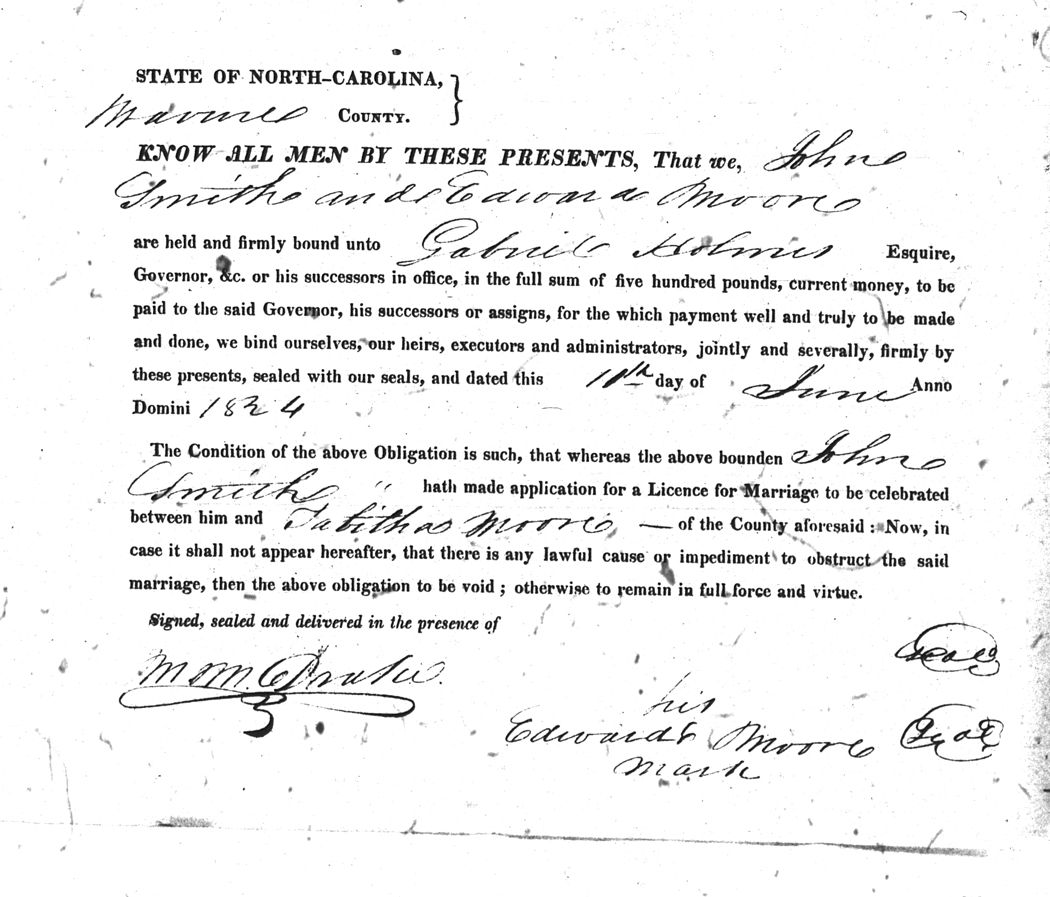 STATE OF NORTH-CAROLINA,
Warren COUNTY.
KNOW ALL MEN BY THESE PRESENTS, That we, John
Smith and Edward Moore
are held and firmly bound unto Gabriel Holmes Esquire,
Governor, &c. or his successors in office, in the full sum of five hundred pounds, current money, to be
paid to the said Governor, his successors or assigns, for the which payment well and truly to be made
and done, we bind ourselves, our heirs, executors and administrators, jointly and severally, firmly by
these presents, sealed with our seals, and dated this day of June Anno
Domini 1824
The Condition of the above Obligation is such, that whereas the above bounden John
Smith " hath made application for a Licence for Marriage to be celebrated
between him and Tabitha Moore — of the County aforesaid : Now, in
case it shall not appear hereafter, that there is any lawful cause or impediment to obstruct the said
marriage, then the above obligation to be void ; otherwise to remain in full force and virtue.
Signed, sealed and delivered in the presence of
Seal
Drake
his
Edward Moore Seal
mark